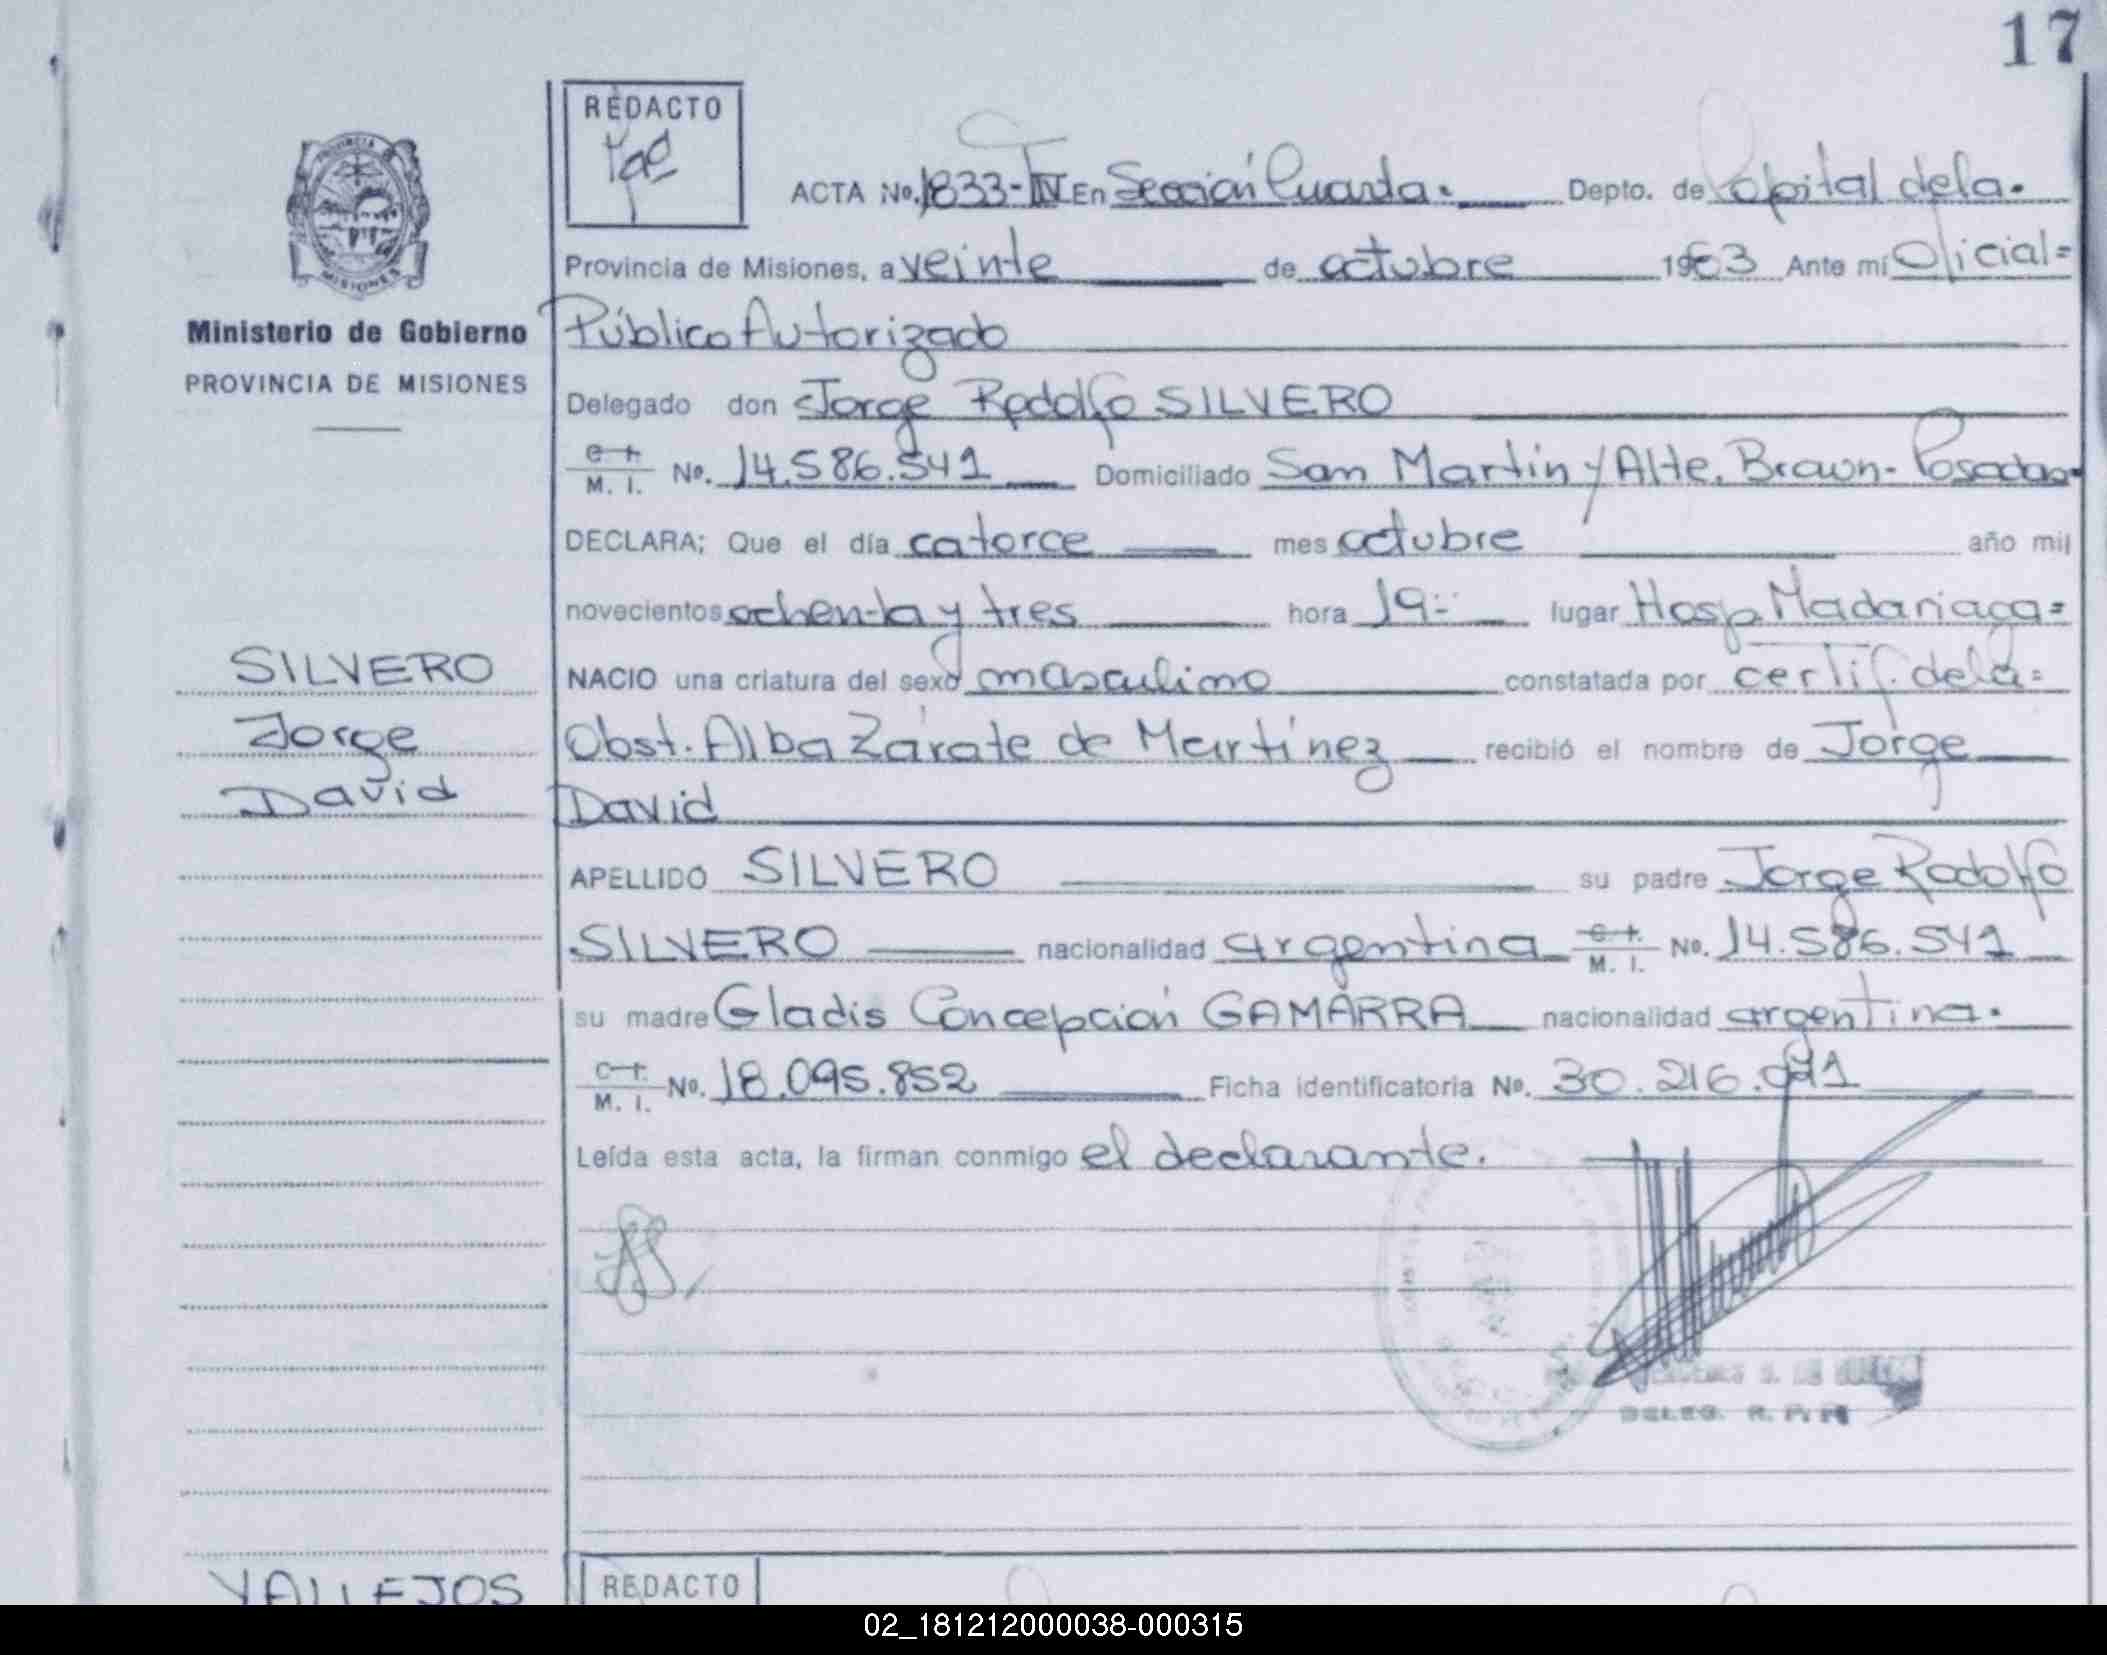 17
REDACTO
ACTA No. 1833-IV En Sección Cuarta. Depto. de Capital dela.
PROVINCIA DE
MISIONES
Provincia de Misiones, a veinte de octubre 1983 Ante mí Oficial=
Ministerio de Gobierno
Público Autorizado
PROVINCIA DE MISIONES
Delegado don Jorge Rodolfo SILVERO
C. I.
M. I. No. 14.586.541 Domiciliado San Martín y Alte. Brown- Posadas
DECLARA; Que el día catorce mes octubre año mil
novecientos ochenta y tres hora 19 lugar Hosp. Madariaga=
SILVERO
NACIO una criatura del sexo masculino constatada por certif. dela=
Jorge
Obst. Alba Zárate de Martínez recibió el nombre de Jorge
David
David
APELLIDO SILVERO su padre Jorge Rodolfo
SILVERO nacionalidad argentina C. I.
M. I. No. 14.586.541
su madre Gladis Concepción GAMARRA nacionalidad argentina.
C. I.
M. I. No. 18.095.852 Ficha identificatoria No. 30.216.091
Leída esta acta, la firman conmigo el declarante.
DELEG. R. P.
VALLEJOS
REDACTO
02_181212000038-000315